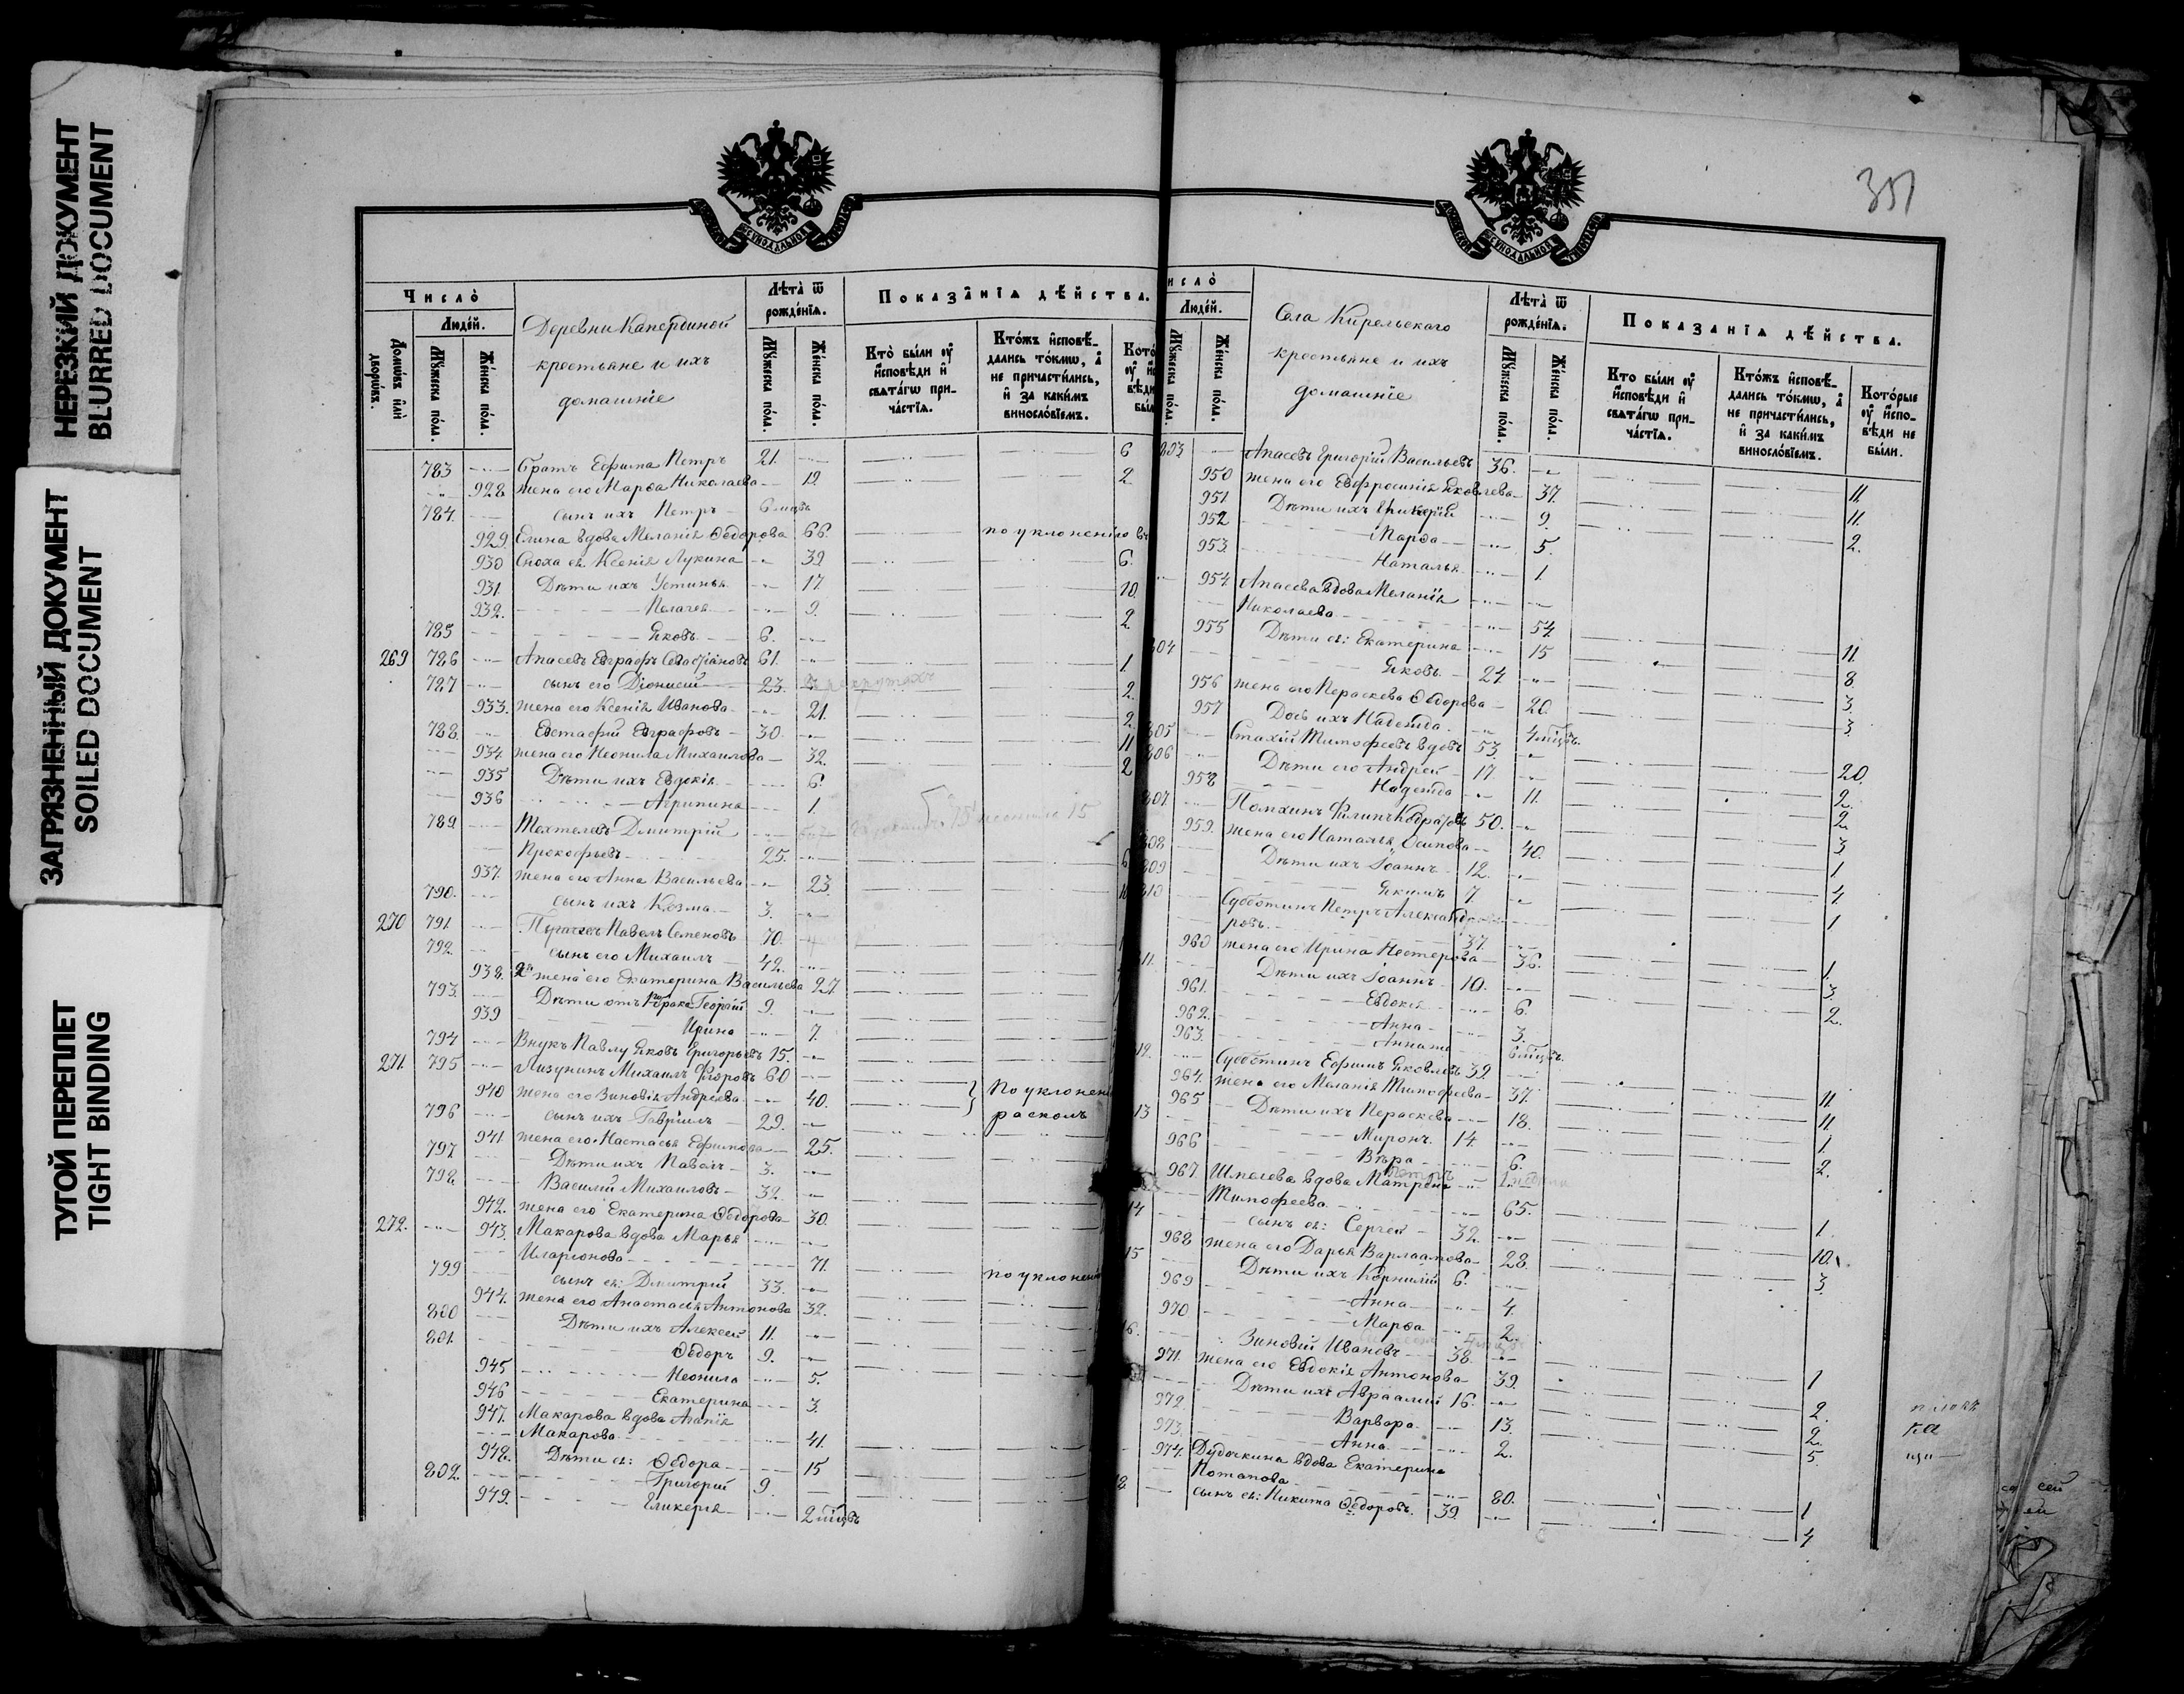 НЕРЕЗКИЙ ДОКУМЕНТ
BLURRED DOCUMENT
ЗАГРЯЗНЕННЫЙ ДОКУМЕНТ
SOILED DOCUMENT
ТУГОЙ ПЕРЕПЛЕТ
TIGHT BINDING
Число
Людей.
Домовъ или дворовъ.
Мужеска пола.
Женска пола.
крестьяне и ихъ
домашніе
Лѣта ѿ рожденія.
Мужеска пола.
Женска пола.
Показанія дѣйства.
Кто были оу исповѣди и святагѡ причастія.
Ктожъ исповѣдались токмѡ, а не причастились, и за какимъ винословіемъ.
783 Братъ Ефима Петръ 21. 6
928 жена его Марѳа Николаева 19. 2
784. сынъ ихъ Петръ 6 мцвъ
929. вдова Меланія Ѳедорова 66. по уклоненію въ
930 Сноха ея Ксенія Лукина 39 6.
931. Дѣти ихъ Устинья 17. 10.
932. Пелагея 9. 2
785 Яковъ 6.
269 786 Апасевъ Евграфъ 61. 1
787 сынъ его Діонисій 23. 2.
933. жена его Ксенія Иванова 21. 2
788. Евстафій Евграфовъ 30. 11
934. жена его Неонила Михаилова 32. 2
935 Дѣти ихъ Евдокія 6.
936 Агрипина 1.
789. Дмитрій
Прокофьевъ 25. 6
937. жена его Анна Васильева 23.
790. сынъ ихъ Козма 3.
270 791. Павелъ Семеновъ 70.
792. сынъ его Михаилъ 42.
938. жена его Екатерина Васильева 27.
793. Дѣти отъ брака Георгій 9.
939 Ирина 7.
794 Внукъ Павлу Яковъ Григорьевъ 15.
271. 795 Лизунинъ Михаилъ 60
940 жена его Зиновія Андреева 40. По уклонен
796 сынъ ихъ Гавріилъ 29. расколъ
941 жена его Настасья Ефимова 25.
797 Дѣти ихъ Павелъ 3.
798. Василій Михаиловъ 32.
942. жена его Екатерина Ѳедорова 30.
272. 943. Макарова вдова Марья
Иларіонова 71.
799 сынъ ея: Дмитрій 33. по уклонен
944. жена его Анастасія Антонова 32.
800 Дѣти ихъ Алексей 11.
801. Ѳедоръ 9.
945 Неонила 5.
946 Екатерина 3.
947. Макарова вдова Агапія
Макарова 41.
948. Дѣти ея: Ѳедора 15
802. Григорій 9.
949. Гликерія 2 мцвъ
351
Людей.
Мужеска пола.
Женска пола.
Села Кирельскаго
крестьяне и ихъ
домашніе
Лѣта ѿ рожденія.
Мужеска пола.
Женска пола.
Показанія дѣйства.
Кто были оу исповѣди и святагѡ причастія.
Ктожъ исповѣдались токмѡ, а не причастились, и за какимъ винословіемъ.
Которые оу исповѣди не были.
803 Апасевъ Григорій Васильевъ 36. 11.
950 жена его Евфросинія Яковлева 37. 11.
951. Дѣти ихъ 9. 2.
952 Марѳа 5.
953. Наталья 1.
954. Апасева вдова Меланія
Николаева 54. 11.
955 Дѣти ея: Екатерина 15 8.
804 Яковъ 24. 3
956 жена его Параскева Ѳедорова 20. 3
957 Дочь ихъ Надежда 4 мцвъ.
805 Стахій Тимофеевъ вдовъ 53. 20.
806 Дѣти его Андрей 17. 2.
958 Надежда 11. 2.
807. Филипъ 50. 3
959. жена его Наталья Осипова 40. 1
808 Дѣти ихъ Іоаннъ 12. 4
809 Якимъ 7. 1
810 Субботинъ Петръ Александ
ровъ 37. 1.
960 жена его Ирина Нестерова 36. 3.
11. Дѣти ихъ Іоаннъ 10. 2.
961. Евдокія 6.
962. Анна 3.
963. 6 мцвъ.
12. Субботинъ Ефимъ Яковлевъ 39. 11.
964. жена его Меланія Тимофеева 37. 11.
965 Дѣти ихъ Параскева 18. 1.
13 Миронъ 14. 2.
966 Вѣра 6.
967 Шмелева вдова Матрена
Тимофеева 65. 1.
14 сынъ ея: Сергей 32. 10.
968 жена его Дарья Варлаамова 28. 3.
15 Дѣти ихъ Корнилій 6.
969 Анна 4.
970 Марѳа 2.
16. Зиновій Ивановъ 38. 1
971. жена его Евдокія Антонова 39. 2.
Дѣти ихъ Авраамій 16. 2.
972. Варвара 13. 5.
973. Анна 2.
974. Дудочкина вдова Екатерина
Потапова 80. 1
18 сынъ ея: Никита Ѳедоровъ. 39. 4